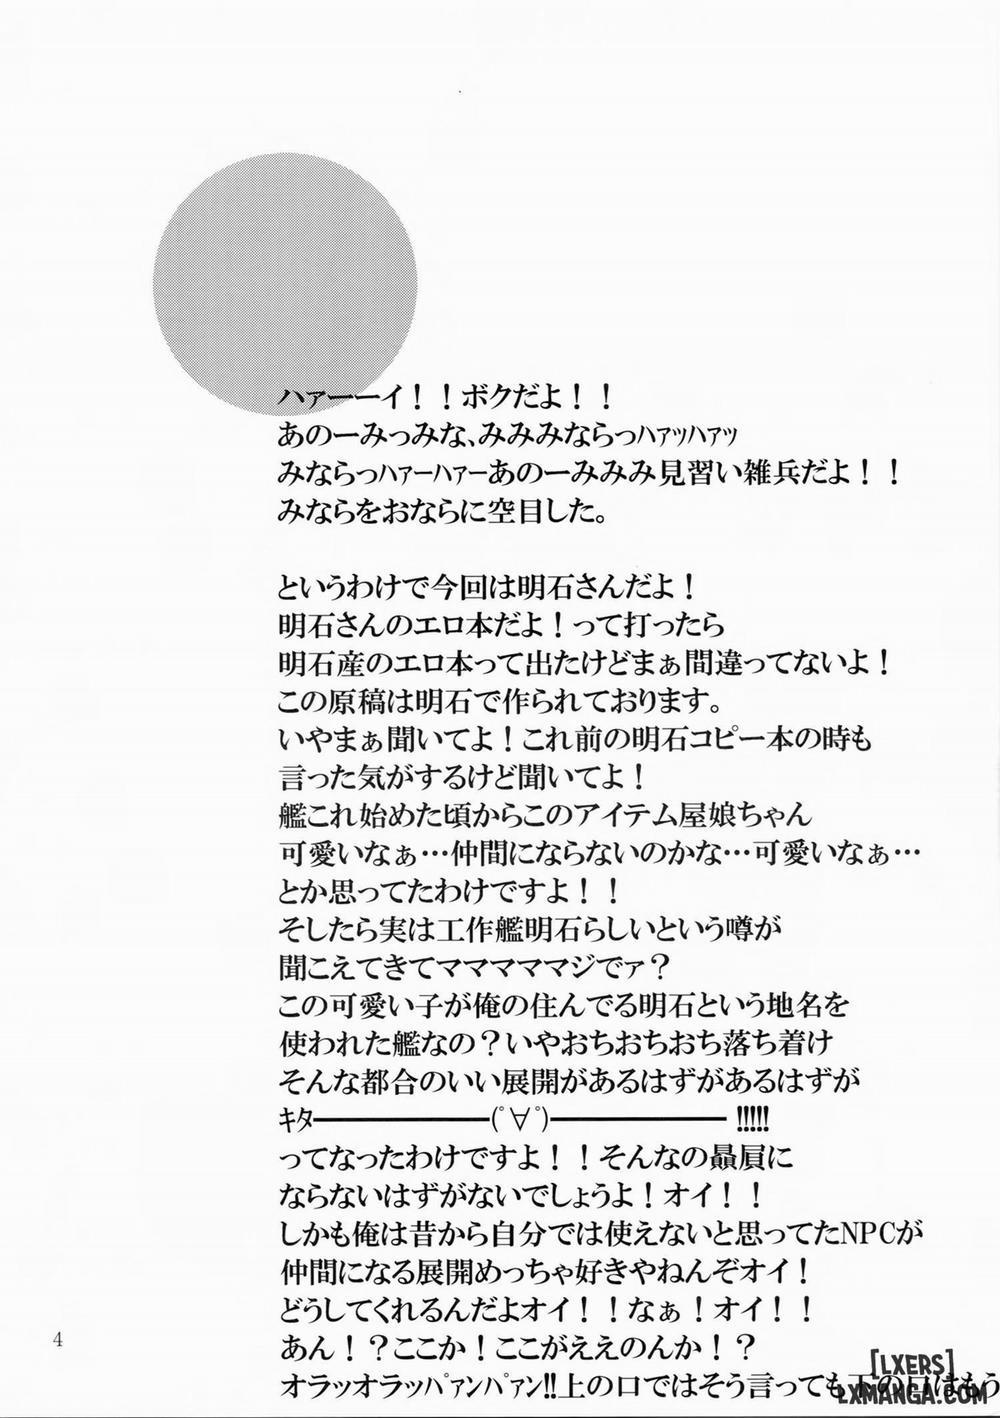 ハァーーイ！！ボクだよ！！
あのーみっみな、みみみならっﾊｧｯﾊｧｯ
みならっﾊｧｰﾊｧｰあのーみみみ見習い雑兵だよ！！
みならをおならに空目した。
というわけで今回は明石さんだよ！
明石さんのエロ本だよ！って打ったら
明石産のエロ本って出たけどまぁ間違ってないよ！
この原稿は明石で作られております。
いやまぁ聞いてよ！これ前の明石コピー本の時も
言った気がするけど聞いてよ！
艦これ始めた頃からこのアイテム屋娘ちゃん
可愛いなぁ…仲間にならないのかな…可愛いなぁ…
とか思ってたわけですよ！！
そしたら実は工作艦明石らしいという噂が
聞こえてきてママママママジでァ？
この可愛い子が俺の住んでる明石という地名を
使われた艦なの？いやおちおちおち落ち着け
そんな都合のいい展開があるはずがあるはずが
ｷﾀ━━━━━━(ﾟ∀ﾟ)━━━━━━ !!!!!
ってなったわけですよ！！そんなの贔屓に
ならないはずがないでしょうよ！オイ！！
しかも俺は昔から自分では使えないと思ってたNPCが
仲間になる展開めっちゃ好きやねんぞオイ！
どうしてくれるんだよオイ！！なぁ！オイ！！
あん！？ここか！ここがええのんか！？
オラッオラッﾊﾟｧﾝﾊﾟｧﾝ!!上の口ではそう言っても下の口はもう
4
[LXERS]
LXMANGA.COM